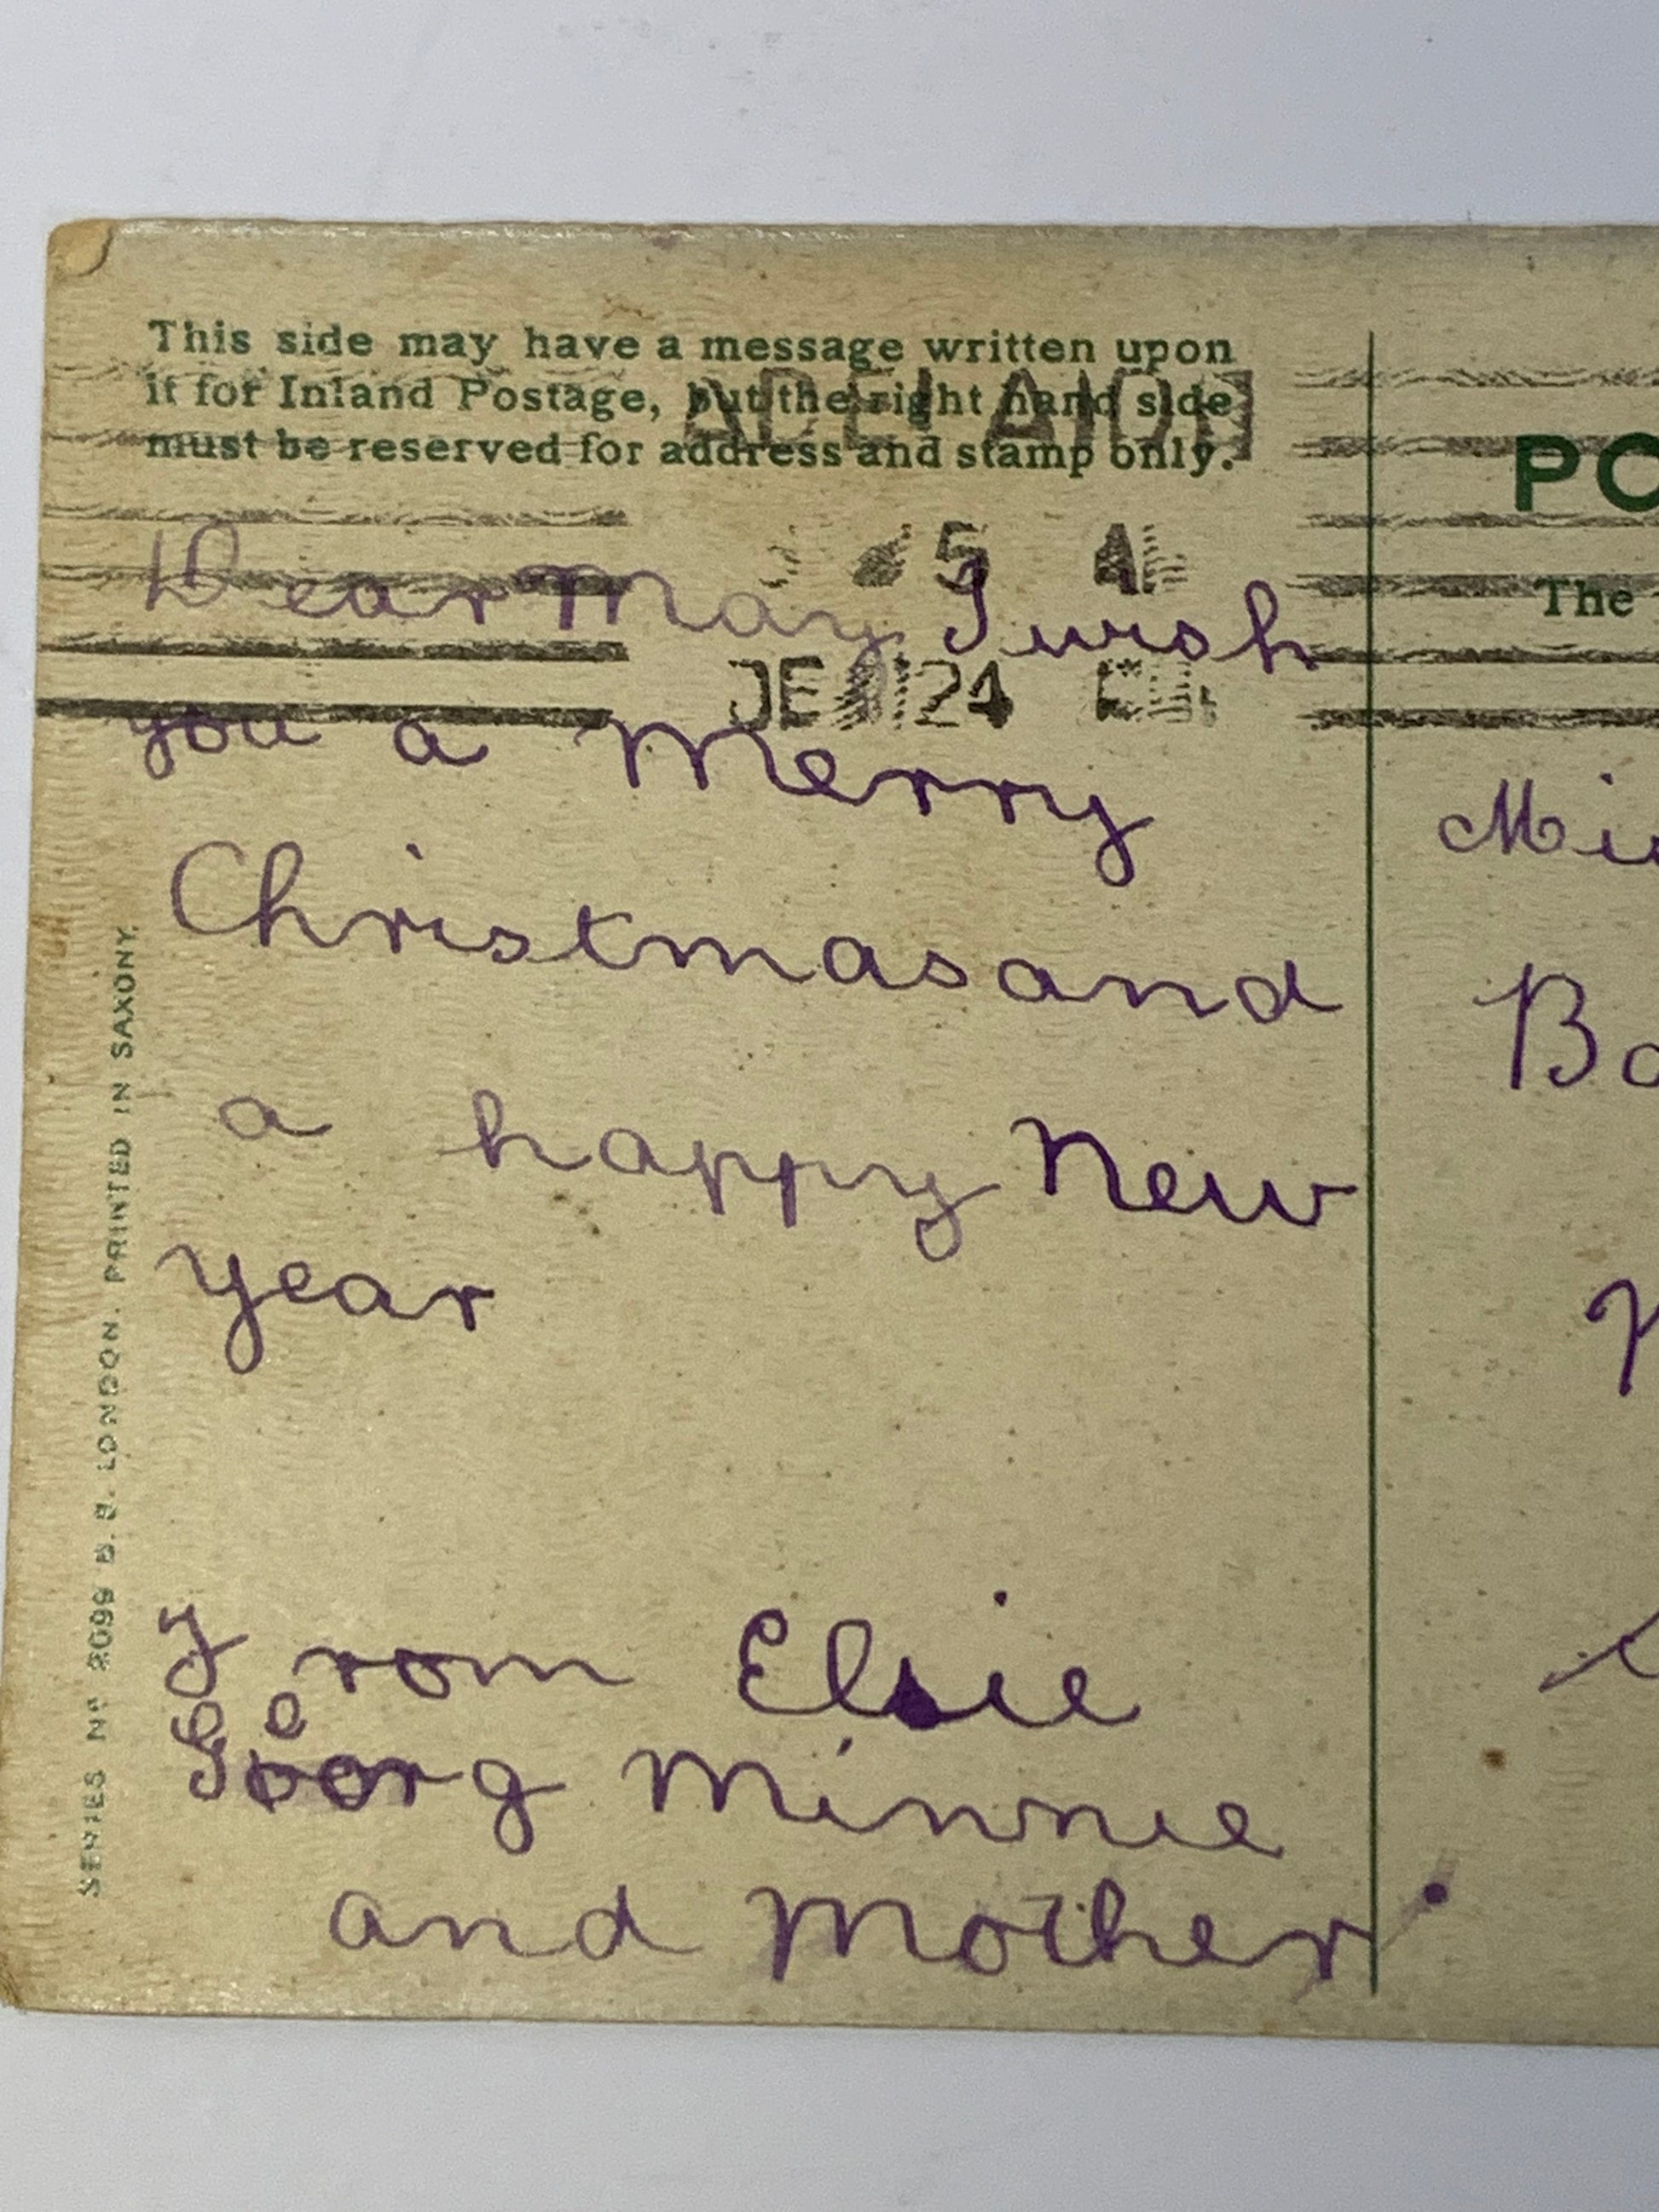 This side may have a message written upon
it for Inland Postage, but the right hand side
must be reserved for address and stamp only.
ADELAIDE
5
24
Dear May I wish
you a Merry
Christmas and
a happy New
year
From Elsie
Georg Minnie
and Mother
SERIES No 2099 B. B. LONDON. PRINTED IN SAXONY.
PO
The
Mi
B